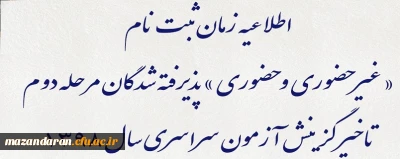 اطلاعیه زمان ثبت نام
« غیرحضوری و حضوری » پذیرفته شدگان مرحله دوم
تاخیر گزینش آزمون سراسری سال
mazandaran.cfu.ac.ir